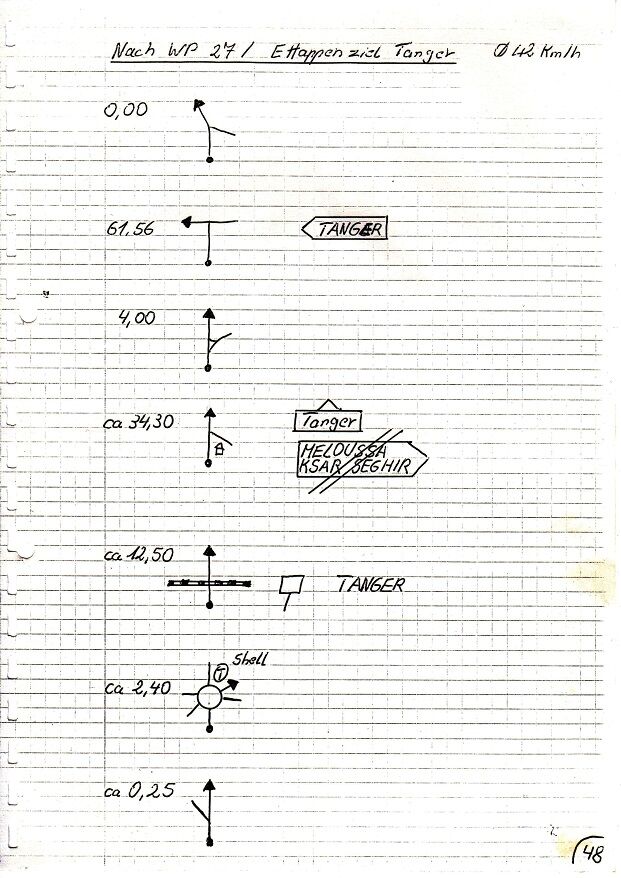 Nach WP 27 / Ettappenziel Tanger Ø 42 Km/h
0,00
61,56 TANGER
4,00
ca 34,30 Tanger
MELOUSSA
KSAR SEGHIR
ca 12,50 TANGER
Shell
T
ca 2,40
ca 0,25
48